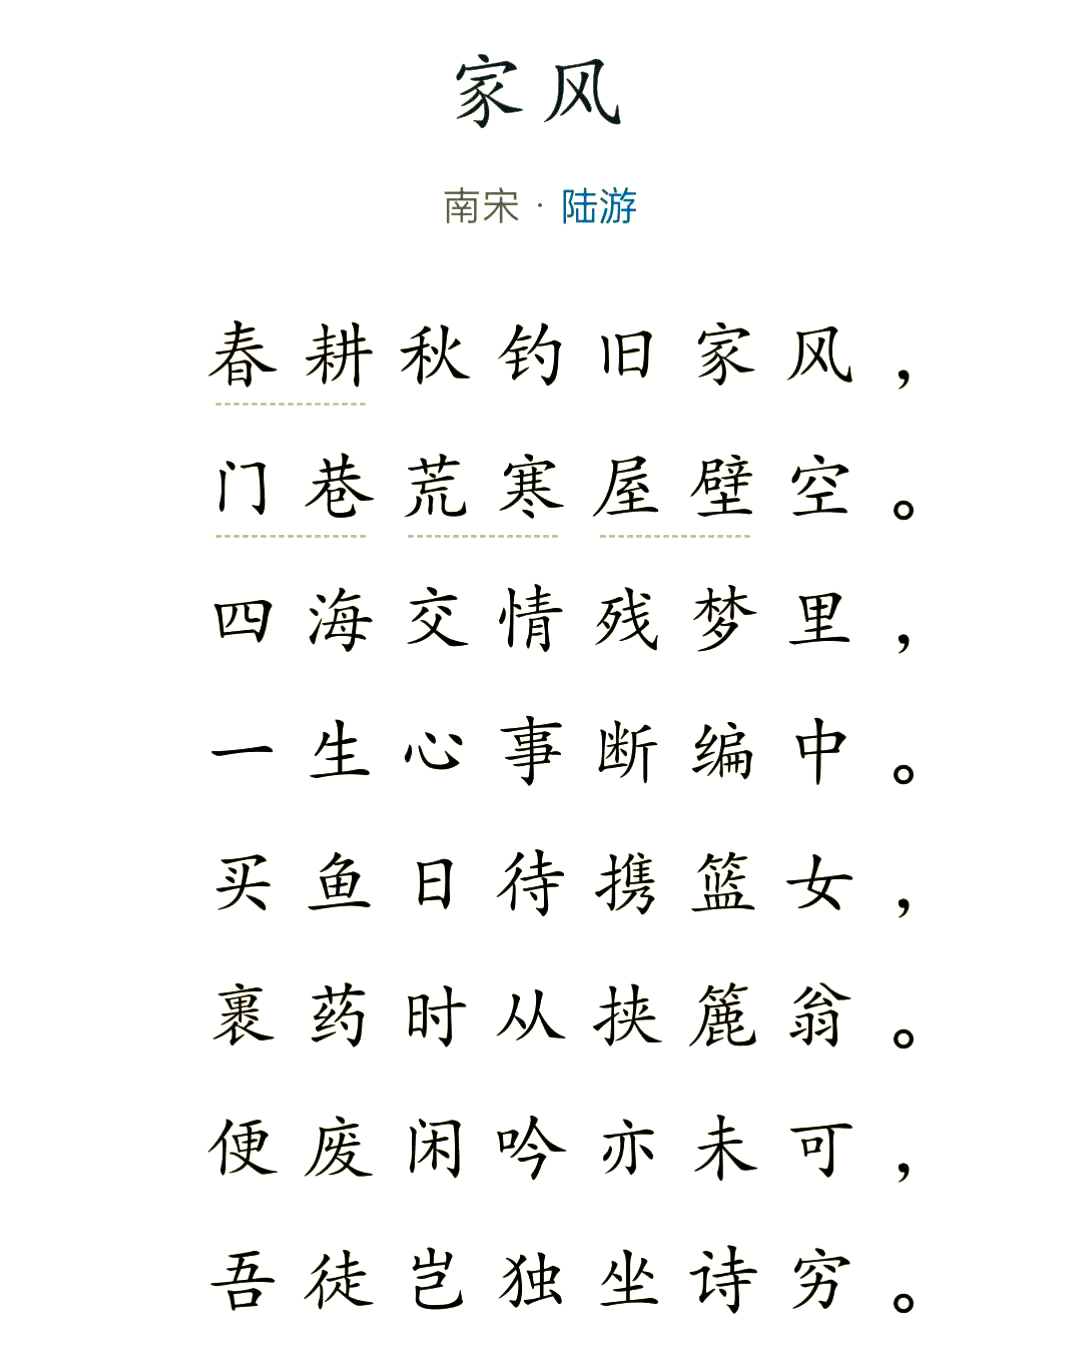 家风
南宋·陆游
春耕秋钓旧家风，
门巷荒寒屋壁空。
四海交情残梦里，
一生心事断编中。
买鱼日待携篮女，
裹药时从挟簏翁。
便废闲吟亦未可，
吾徒岂独坐诗穷。